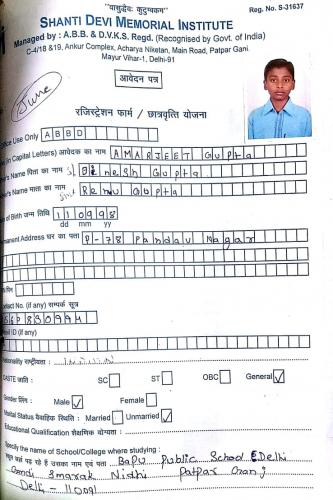 "वासुदेवः कुटुम्बकम"
Reg. No. S-31637
SHANTI DEVI MEMORIAL INSTITUTE
Managed by : A.B.B. & D.V.K.S. Regd. (Recognised by Govt. of India)
C-4/18 &19, Ankur Complex, Acharya Niketan, Main Road, Patpar Ganj.
Mayur Vihar-1, Delhi-91
आवेदन पत्र
June
रजिस्ट्रेशन फार्म / छात्रवृत्ति योजना
Office Use Only A B B D
(in Capital Letters) आवेदक का नाम AMARJEET Gupta
Name पिता का नाम Dinesh Gupta
Name माता का नाम Renu Gupta
of Birth जन्म तिथि 110998
dd mm yy
Address घर का पता P-78 Pandav Nagar
पिन
No. (if any) सम्पर्क सूत्र
ID (if any)
Nationality राष्ट्रीयता :
CASTE जाति : SC ST OBC General ✓
Gender लिंग : Male ✓ Female
Marital Status वैवाहिक स्थिति : Married Unmarried ✓
Educational Qualification शैक्षणिक योग्यता :
Specify the name of School/College where studying :
पढ़ रहे है उसका नाम एवं पता : Bapu Public School Delhi
Gandi Smarak Nidhi Patpar Ganj
Delhi - 110091